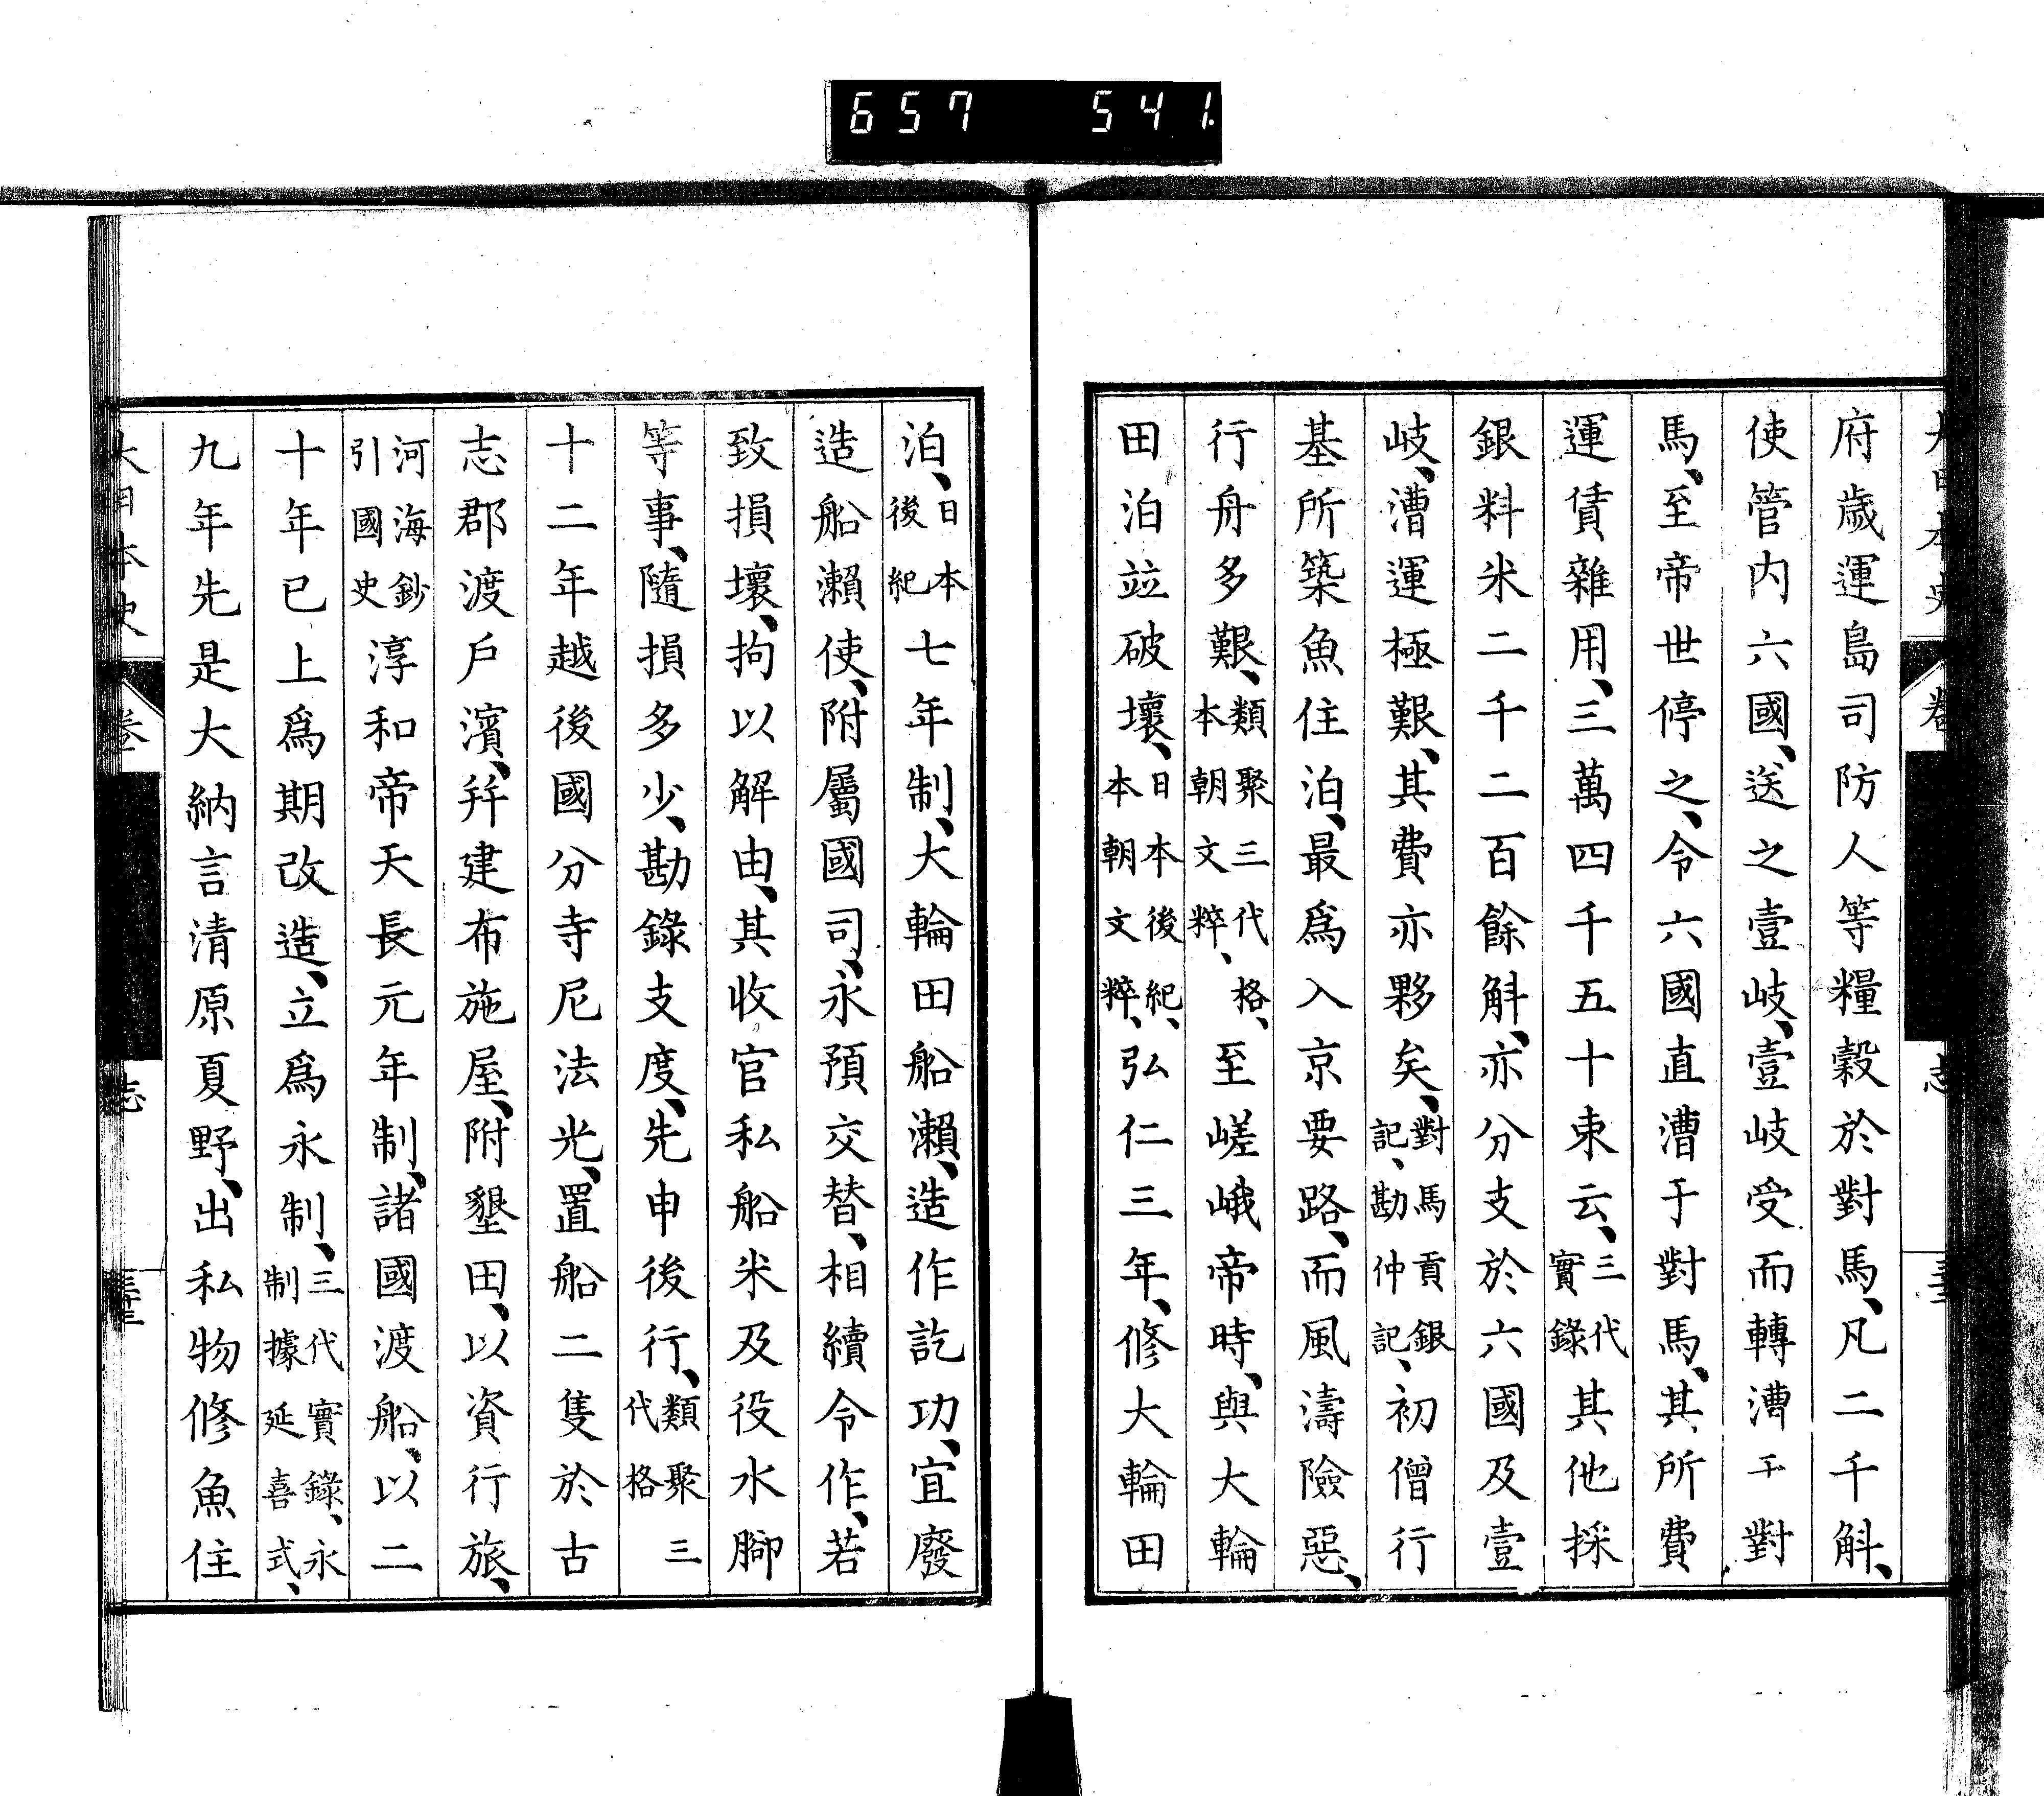 657 541.
府歲運島司防人等糧穀於對馬、凡二千斛、
使管内六國、送之壹岐、壹岐受而轉漕于對
馬、至帝世停之、令六國直漕于對馬、其所費
運賃雜用、三萬四千五十束云、三代實錄其他採
銀料米二千二百餘斛、亦分支於六國及壹
岐、漕運極艱、其費亦夥矣、對馬貢銀記、勘仲記、初僧行
基所築魚住泊、最爲入京要路、而風濤險惡、
行舟多艱、類聚三代格、本朝文粹、至嵯峨帝時、與大輪
田泊竝破壞、日本後紀、本朝文粹、弘仁三年、修大輪田
泊、日本後紀七年制、大輪田船瀨、造作訖功、宜廢
造船瀨使、附屬國司、永預交替、相續令作、若
致損壞、拘以解由、其收官私船米及役水脚
等事、隨損多少、勘錄支度、先申後行、類聚三代格
十二年越後國分寺尼法光、置船二隻於古
志郡渡戶濱、幷建布施屋、附墾田、以資行旅、
河海鈔引國史淳和帝天長元年制、諸國渡船、以二
十年已上爲期改造、立爲永制、三代實錄、永制據延喜式、
九年先是大納言清原夏野、出私物修魚住
大日本史 卷 志